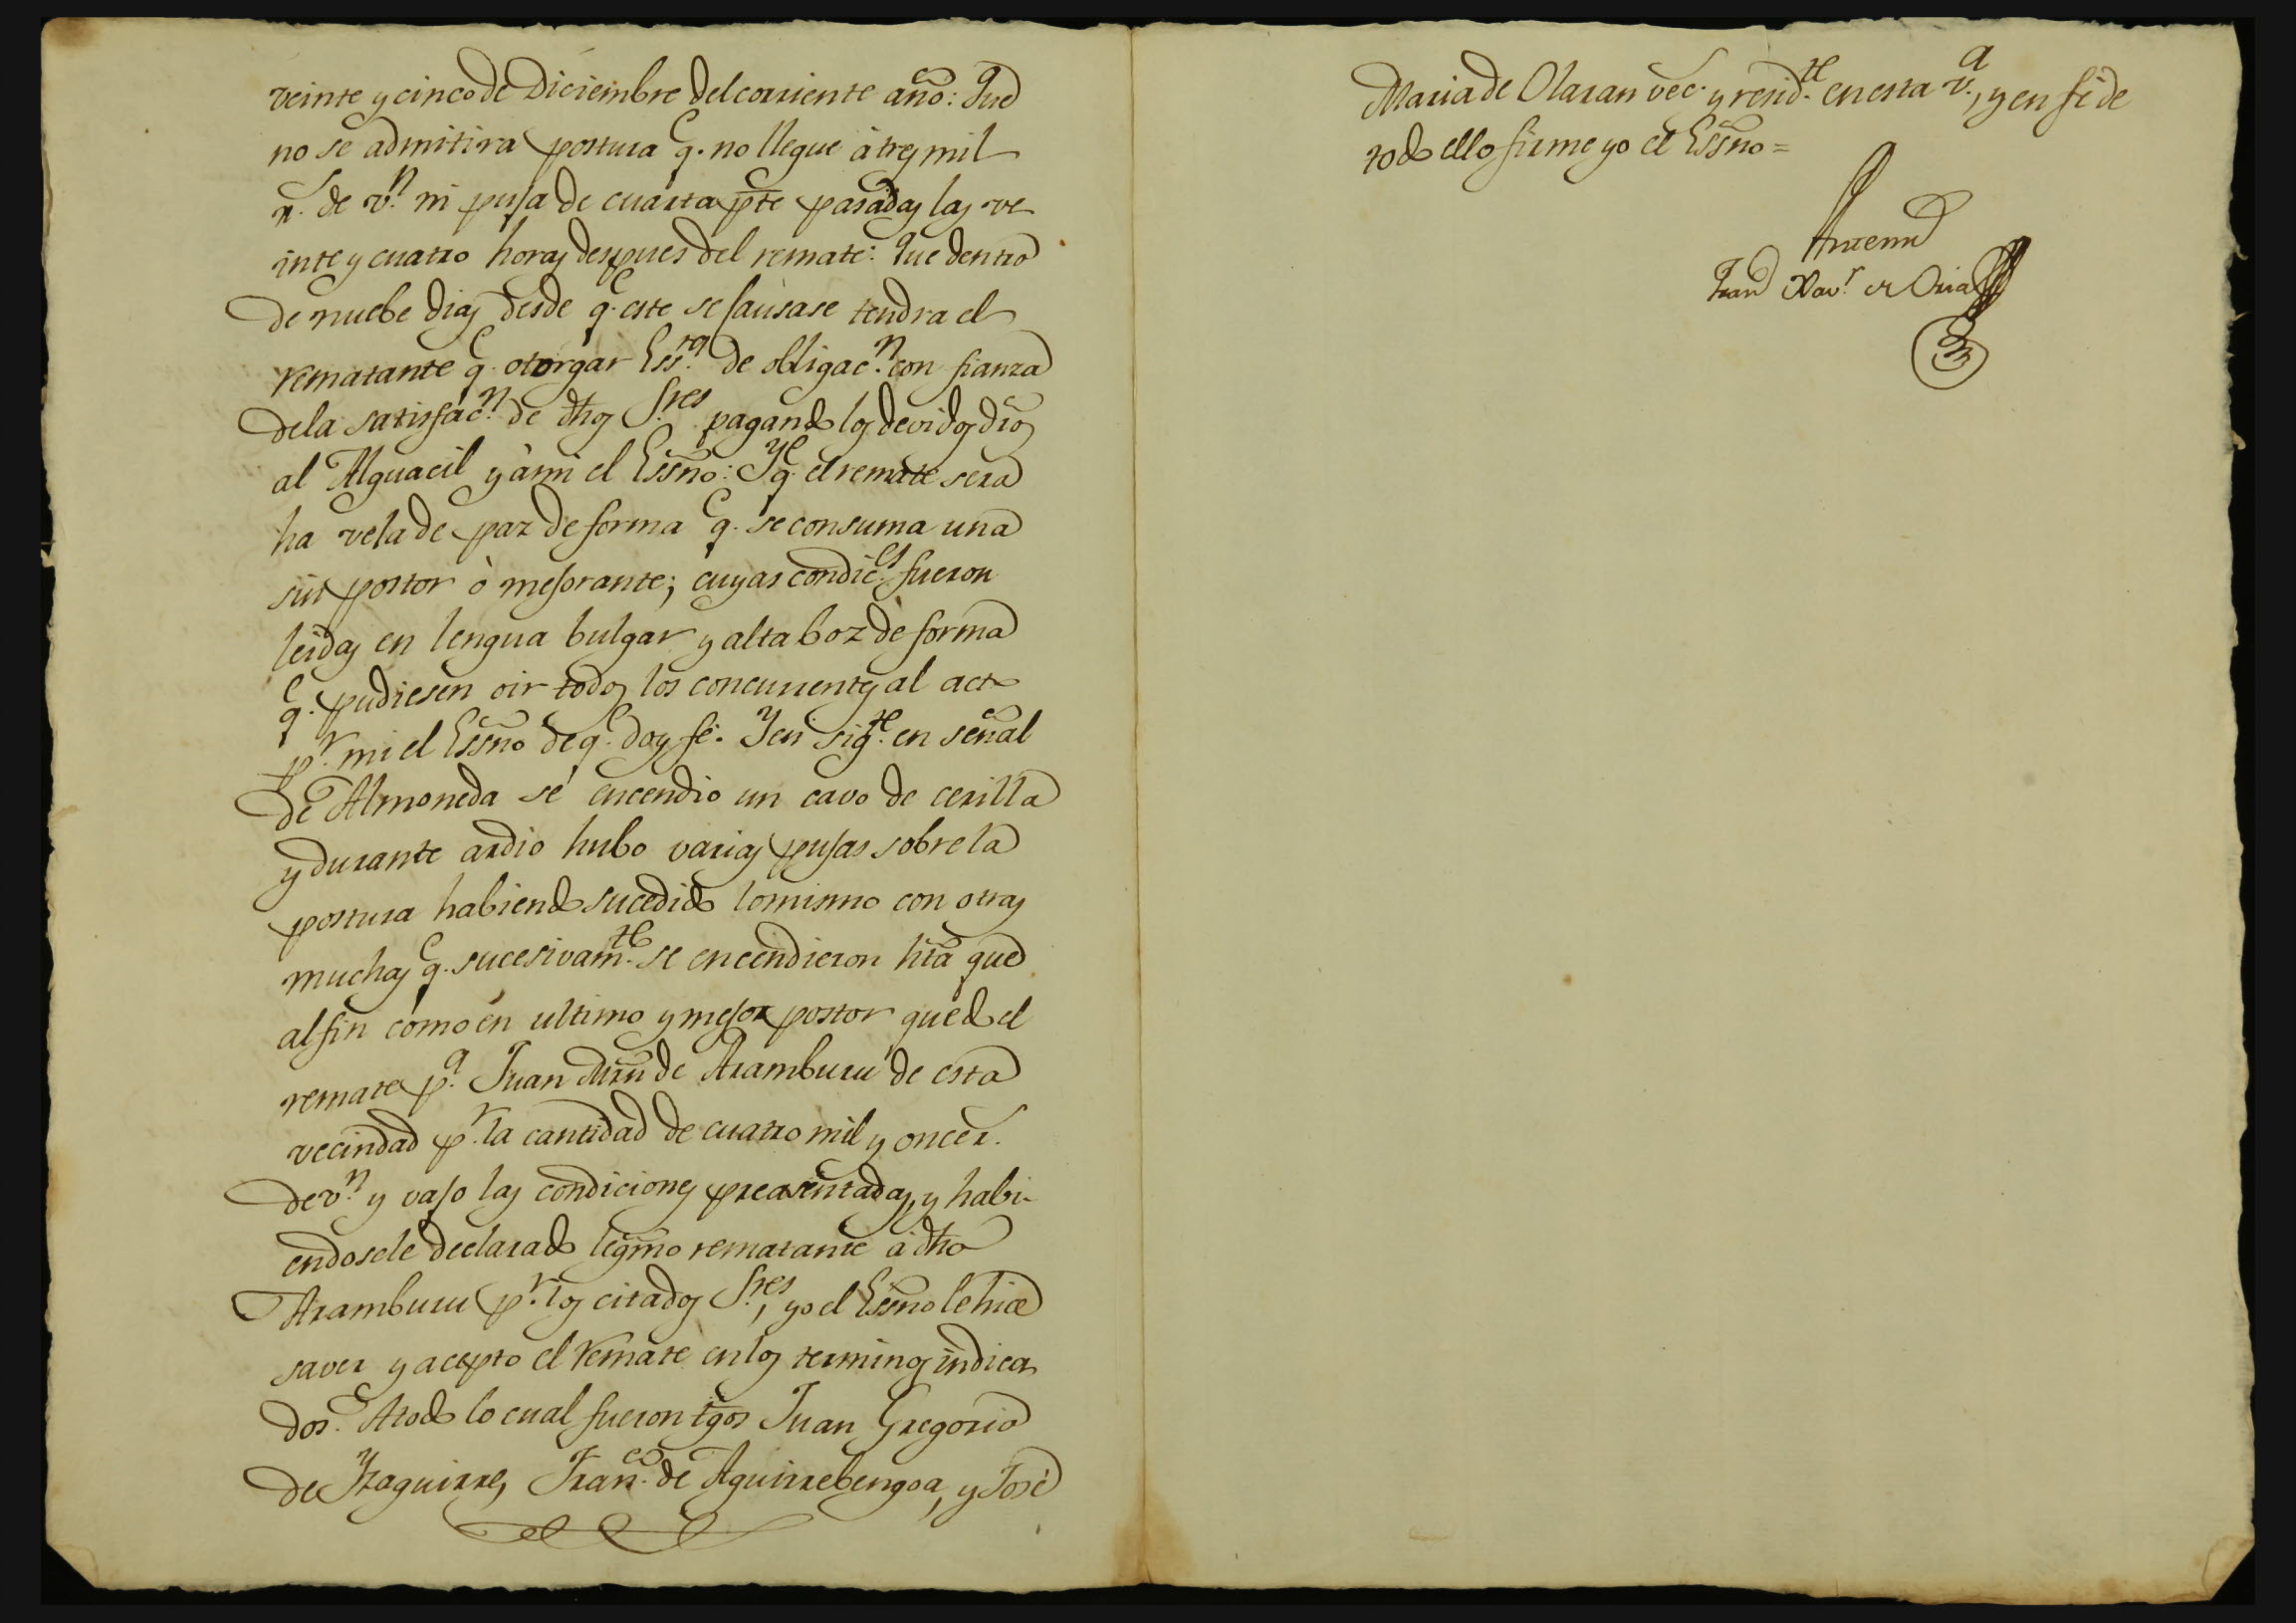 veinte y cinco de Diciembre del corriente año: Que
no se admitira postura q.e no llegue à tres mil
r.s de v.n ni puja de cuarta pte pasadas las ve
inte y cuatro horas despues del remate: Que dentro
de nuebe dias desde q.e este se causase tendra el
rematante q.e otorgar Ess.ra de obligac.n con fianza
de la satisfac.n de dhos S.res pagando los devidos dros
al Alguacil y à mi el Essno: Y q.e el remate sera
ha vela de paz de forma q.e se consuma una
sin postor ò mejorante; cuyas condic.es fueron
leidas en lengua bulgar y alta boz de forma
q.e pudiesen oir todos los concurrentes al acto
p.r mi el Essno de q.e doy fé. Y en sig.te en señal
de Almoneda se encendio un cavo de cerilla
y durante ardio hubo varias pujas sobre la
postura habiendo sucedido lo mismo con otras
muchas q.e sucesivam.te se encendieron hta que
al fin como en ultimo y mejor postor quedo el
remate p.a Juan Mrn de Aramburu de esta
vecindad p.r la cantidad de cuatro mil y once r.s
de v.n y vajo las condiciones preasentadas, y habi-
endosele declarado legmo rematante à dho
Aramburu p.r los citados S.res, yo el Essno le hice
saver y acepto el remate en los terminos indica
dos. A todo lo cual fueron tgos Juan Gregorio
de Yzaguirre, Fran.co de Aguirrebengoa, y José
Maria de Olaran vec.s y resid.te en esta v.a, y en fé de
todo ello firme yo el Essno =
Antemi
Fran Xav.r de Oria